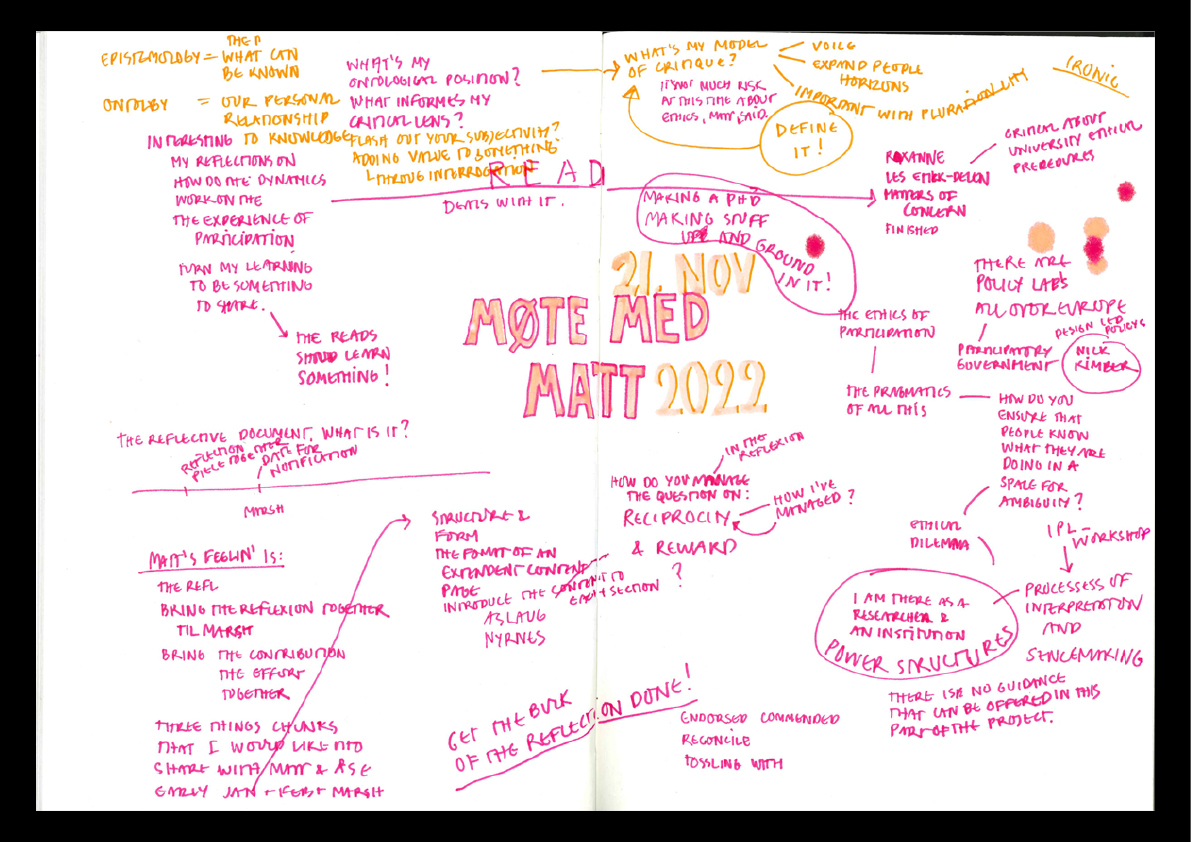 EPISTEMOLOGY = WHAT CAN
BE KNOWN
ONTOLOGY = OUR PERSONAL
RELATIONSHIP
TO KNOWLEDGE
INTERESTING
MY REFLECTIONS ON
HOW DO THE DYNAMICS
WORK ON THE
THE EXPERIENCE OF
PARTICIPATION
TURN MY LEARNING
TO BE SOMETHING
TO SHARE.
THE READS
SHOULD LEARN
SOMETHING!
WHAT'S MY
ONTOLOGICAL POSITION?
WHAT INFORMES MY
CRITICAL LENS?
FLASH OUT YOUR SUBJECTIVITY?
ADDING VALUE TO SOMETHING
THROUG INTERROGATION
READ
DEALS WITH IT.
WHAT'S MY MODEL
OF CRITIQUE?
VOICE
EXPAND PEOPLE
HORIZONS
IMPORTANT WITH
IRONIC
IT'S NOT MUCH RISK
AT THIS TIME ABOUT
ETHICS, MATT SAID.
DEFINE
IT!
CRITICAL ABOUT
UNIVERSITY ETHICAL
PREREDURES
ROXANNE
MATTERS OF
CONCERN
FINISHED
MAKING A PHD
MAKING STUFF
UP AND GROUND
IN IT!
21. NOV
MØTE MED
MATT 2022
THE ETHICS OF
PARTICIPATION
THE PRAGMATICS
OF ALL THIS
THERE ARE
POLICY LAB'S
ALL OVER EUROPE
PARTICIPATORY
GOVERNMENT
DESIGN LED
POLICYS
NICK
KIMBER
HOW DO YOU
ENSURE THAT
PEOPLE KNOW
WHAT THEY ARE
DOING IN A
SPACE FOR
AMBIGUITY?
ETHICAL
DILEMMA
IPL-
WORKSHOP
PROCESSESS OF
INTERPRETATION
AND
SENCEMAKING
I AM THERE AS A
RESEARCHER &
AN INSTITUTION
POWER STRUCTURES
THERE IS NO GUIDANCE
THAT CAN BE OFFERED IN THIS
PART OF THE PROJECT.
THE REFLECTIVE DOCUMENT, WHAT IS IT?
REFLECTION
PIECE TOGETHER
DATE FOR
NOTIFICATION
MARSH
MATT'S FEELIN' IS:
THE REFL
BRING THE REFLEXION TOGETHER
TIL MARSH
BRING THE CONTRIBUTION
THE EFFORT
TOGETHER
THREE THINGS CHUNKS
THAT I WOULD LIKE TO
SHARE WITH MATT & ÅSE
EARLY JAN + FERST MARSH
STRUCTURE &
FORM
THE FOMAT OF AN
EXTENDENT CONTENT
PAGE
INTRODUCE THE CONTENT TO
EACH SECTION
ASLAUG
NYRNES
IN THE
REFLEXION
HOW DO YOU MANAGE
THE QUESTION ON:
RECIPROCITY
& REWARD
?
HOW I'VE
MANAGED?
GET THE BULK
OF THE REFLECTION DONE!
ENDORSED COMMENDED
RECONCILE
TOSSLING WITH